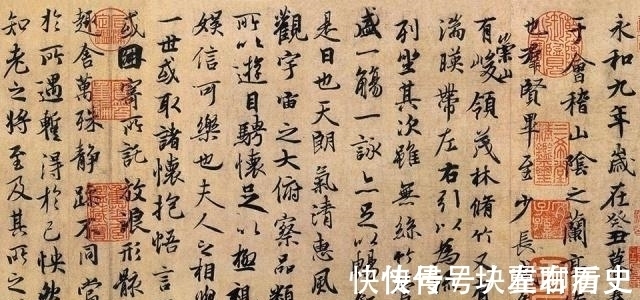 永和九年歲在癸丑
于會稽山陰之蘭
也羣賢畢至少長
有崇山峻領茂林脩竹又
湍暎帶左右引以為
列坐其次雖無絲竹
盛一觴一詠亦足以暢
是日也天朗氣清惠風
觀宇宙之大俯察品類
所以遊目騁懷足以極視
娛信可樂也夫人之相與
一世或取諸懷抱悟言
或因寄所託放浪形骸
趣舍萬殊静躁不同當
於所遇暫得於己怏然
知老之將至及其所之